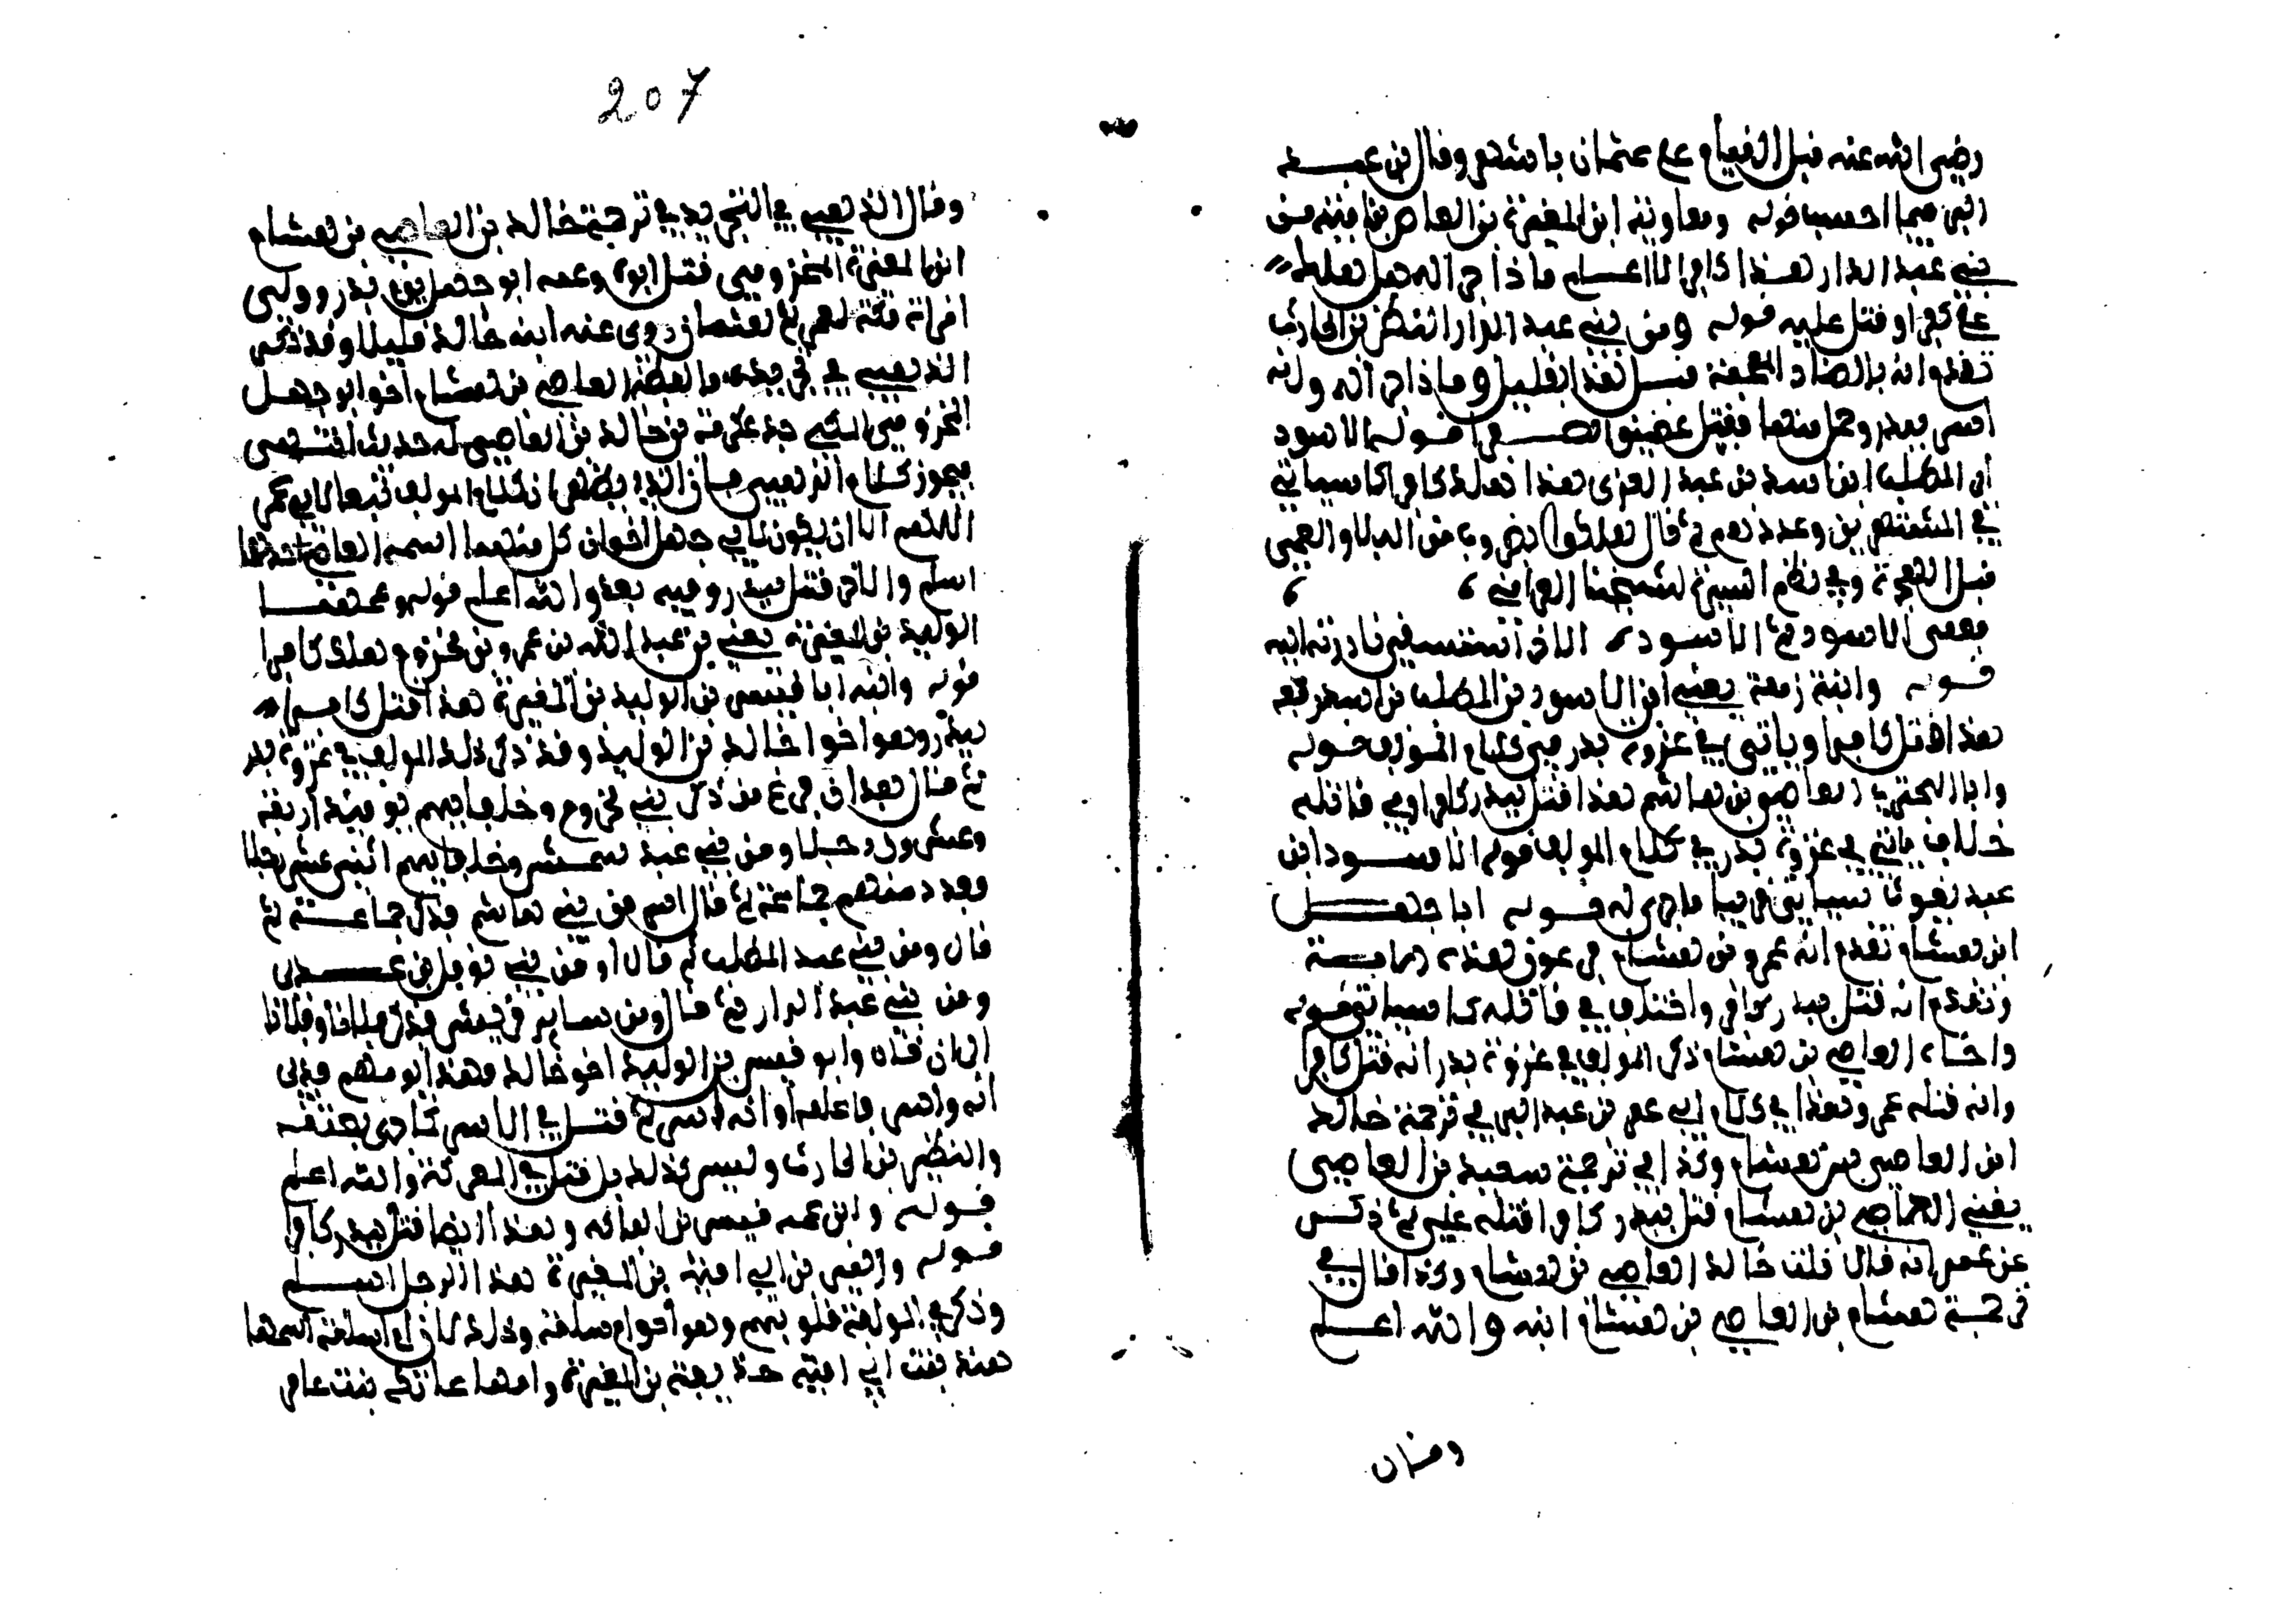 رضي الله عنه قبل القيام على عثمان باشهر وقال ابن عبد
البر فيما احسب قوله ومعاوية ابن المغيرة بن العاص بن امية من
بني عبد الدار هذا كافر لا اعلم ماذا جرا له هل هلك
على كفر او قتل عليه قوله ومن بني عبد الدار النضر بن الحارث
تقدم انه بالضاد المعجمة قبل هذا بقليل وماذا جرا له وانه
اسر ببدر وحمل منها فقتل قوله الاسود
ابن المطلب ابن اسد بن عبد العزى هذا هلك كافرا كما سياتي
في المستهزين وعدد هم ثم قال هلكوا بضروب من البلا والعمى
قبل الهجرة وفي نظم السيرة لشيخنا العراقي
فعمي الاسود ثم الاسود الاخر استسقى فاردته اليه
قوله وابنه زمعة يعني ابن الاسود بن المطلب بن اسد زمعة
هذا قتل كافرا وياتي في غزوة بدر في كلام المولف قوله
وابا البختري العاصي بن هاشم هذا قتل ببدر كافرا وفي قاتله
خلاف ياتي في غزوة بدر في كلام المولف قوله الاسود ابن
عبد يغوث سياتي قريبا ما جرى له قوله ابا جهل
ابن هشام تقدم انه عمرو بن هشام فرعون هذه الامة
وتقدم انه قتل ببدر كافرا واختلف في قاتله كما سياتي قوله
واخاه العاصي بن هشام ذكر المولف في غزوة بدر انه قتل كافرا
وانه قتله عمر وهذا في كلام ابي عمر بن عبد البر في ترجمة خالد
ابن العاصي بن هشام وكذا في ترجمة سعيد بن العاصي
يعني العاصي بن هشام قتل ببدر كافرا قتله علي ثم ذكر
عن عمر انه قال قلت خالد العاصي بن هشام وكذا قال في
ترجمة هشام بن العاصي بن هشام انه والله اعلم
وقال
207
وقال الذهبي في التجريد في ترجمة خالد بن العاصي بن هشام
ابن المغيرة المخزومي قتل ابوه وعمه ابو جهل يوم بدر وولي
امرة مكة لعمر ثم لعثمان روى عنه ابنه خالد قليلا وقد ذكر
الذهبي في تجريده ما لفظه العاصي بن هشام اخو ابو جهل
المخزومي المكي جد عكرمة بن خالد بن العاصي له حديث انتهى
فيجوز كلام الذهبي فان الذي يظهر ان كلام المولف تبعا لابي عمر
اللهم الا ان يكون لابي جهل اخوان كل منهما اسمه العاصي احدهما
اسلم والاخر قتل ببدر وفيه بعد والله اعلم قوله وعمهما
الوليد بن المغيرة يعني بن عبد الله بن عمرو بن مخزوم هلك كافرا
قوله وابنه ابا قيس بن الوليد بن المغيرة هذا قتل كافرا
ببدر وهو اخو خالد بن الوليد وقد ذكر ذلك المولف في غزوة بدر
ثم قال بعد ان فرغ من ذكر بني مخزوم وحلفايهم يوميذ اربعة
وعشرون رجلا ومن بني عبد شمس وحلفايهم اثني عشر رجلا
وعدد منهم جماعة ثم قال اسر من بني هاشم فذكر جماعة ثم
قال ومن بني عبد المطلب ثم قال او من بني نوفل بن عدي
ومن بني عبد الدار ثم قال ومن ساير قريش فذكر فلانا وفلانا
الى ان قال وابو قيس بن الوليد اخو خالد فهذا ابو منهم فذكر
انه واسر فاعلمه او انه اسر ثم قتل في الاسر كما جرى لعقبة
والنضير بن الحارث وليس كذلك بل قتل في المعركة والله اعلم
قوله وابن عمه قيس بن الفاكه وهذا ايضا قتل ببدر كافرا
قوله وزهير بن ابي امية بن المغيرة هذا الرجل اسلم
وذكر في المولفة قلوبهم وهو اخو ام سلمة وذلك لان ام سلمة اسمها
هند بنت ابي امية حذيفة بن المغيرة وامها عاتكة بنت عامر